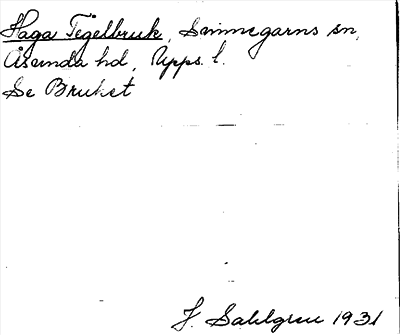 Haga Tegelbruk, Svinnegarns sn,
Åsunda hd, Upps. l.
Se Bruket
J. Sahlgren 1931